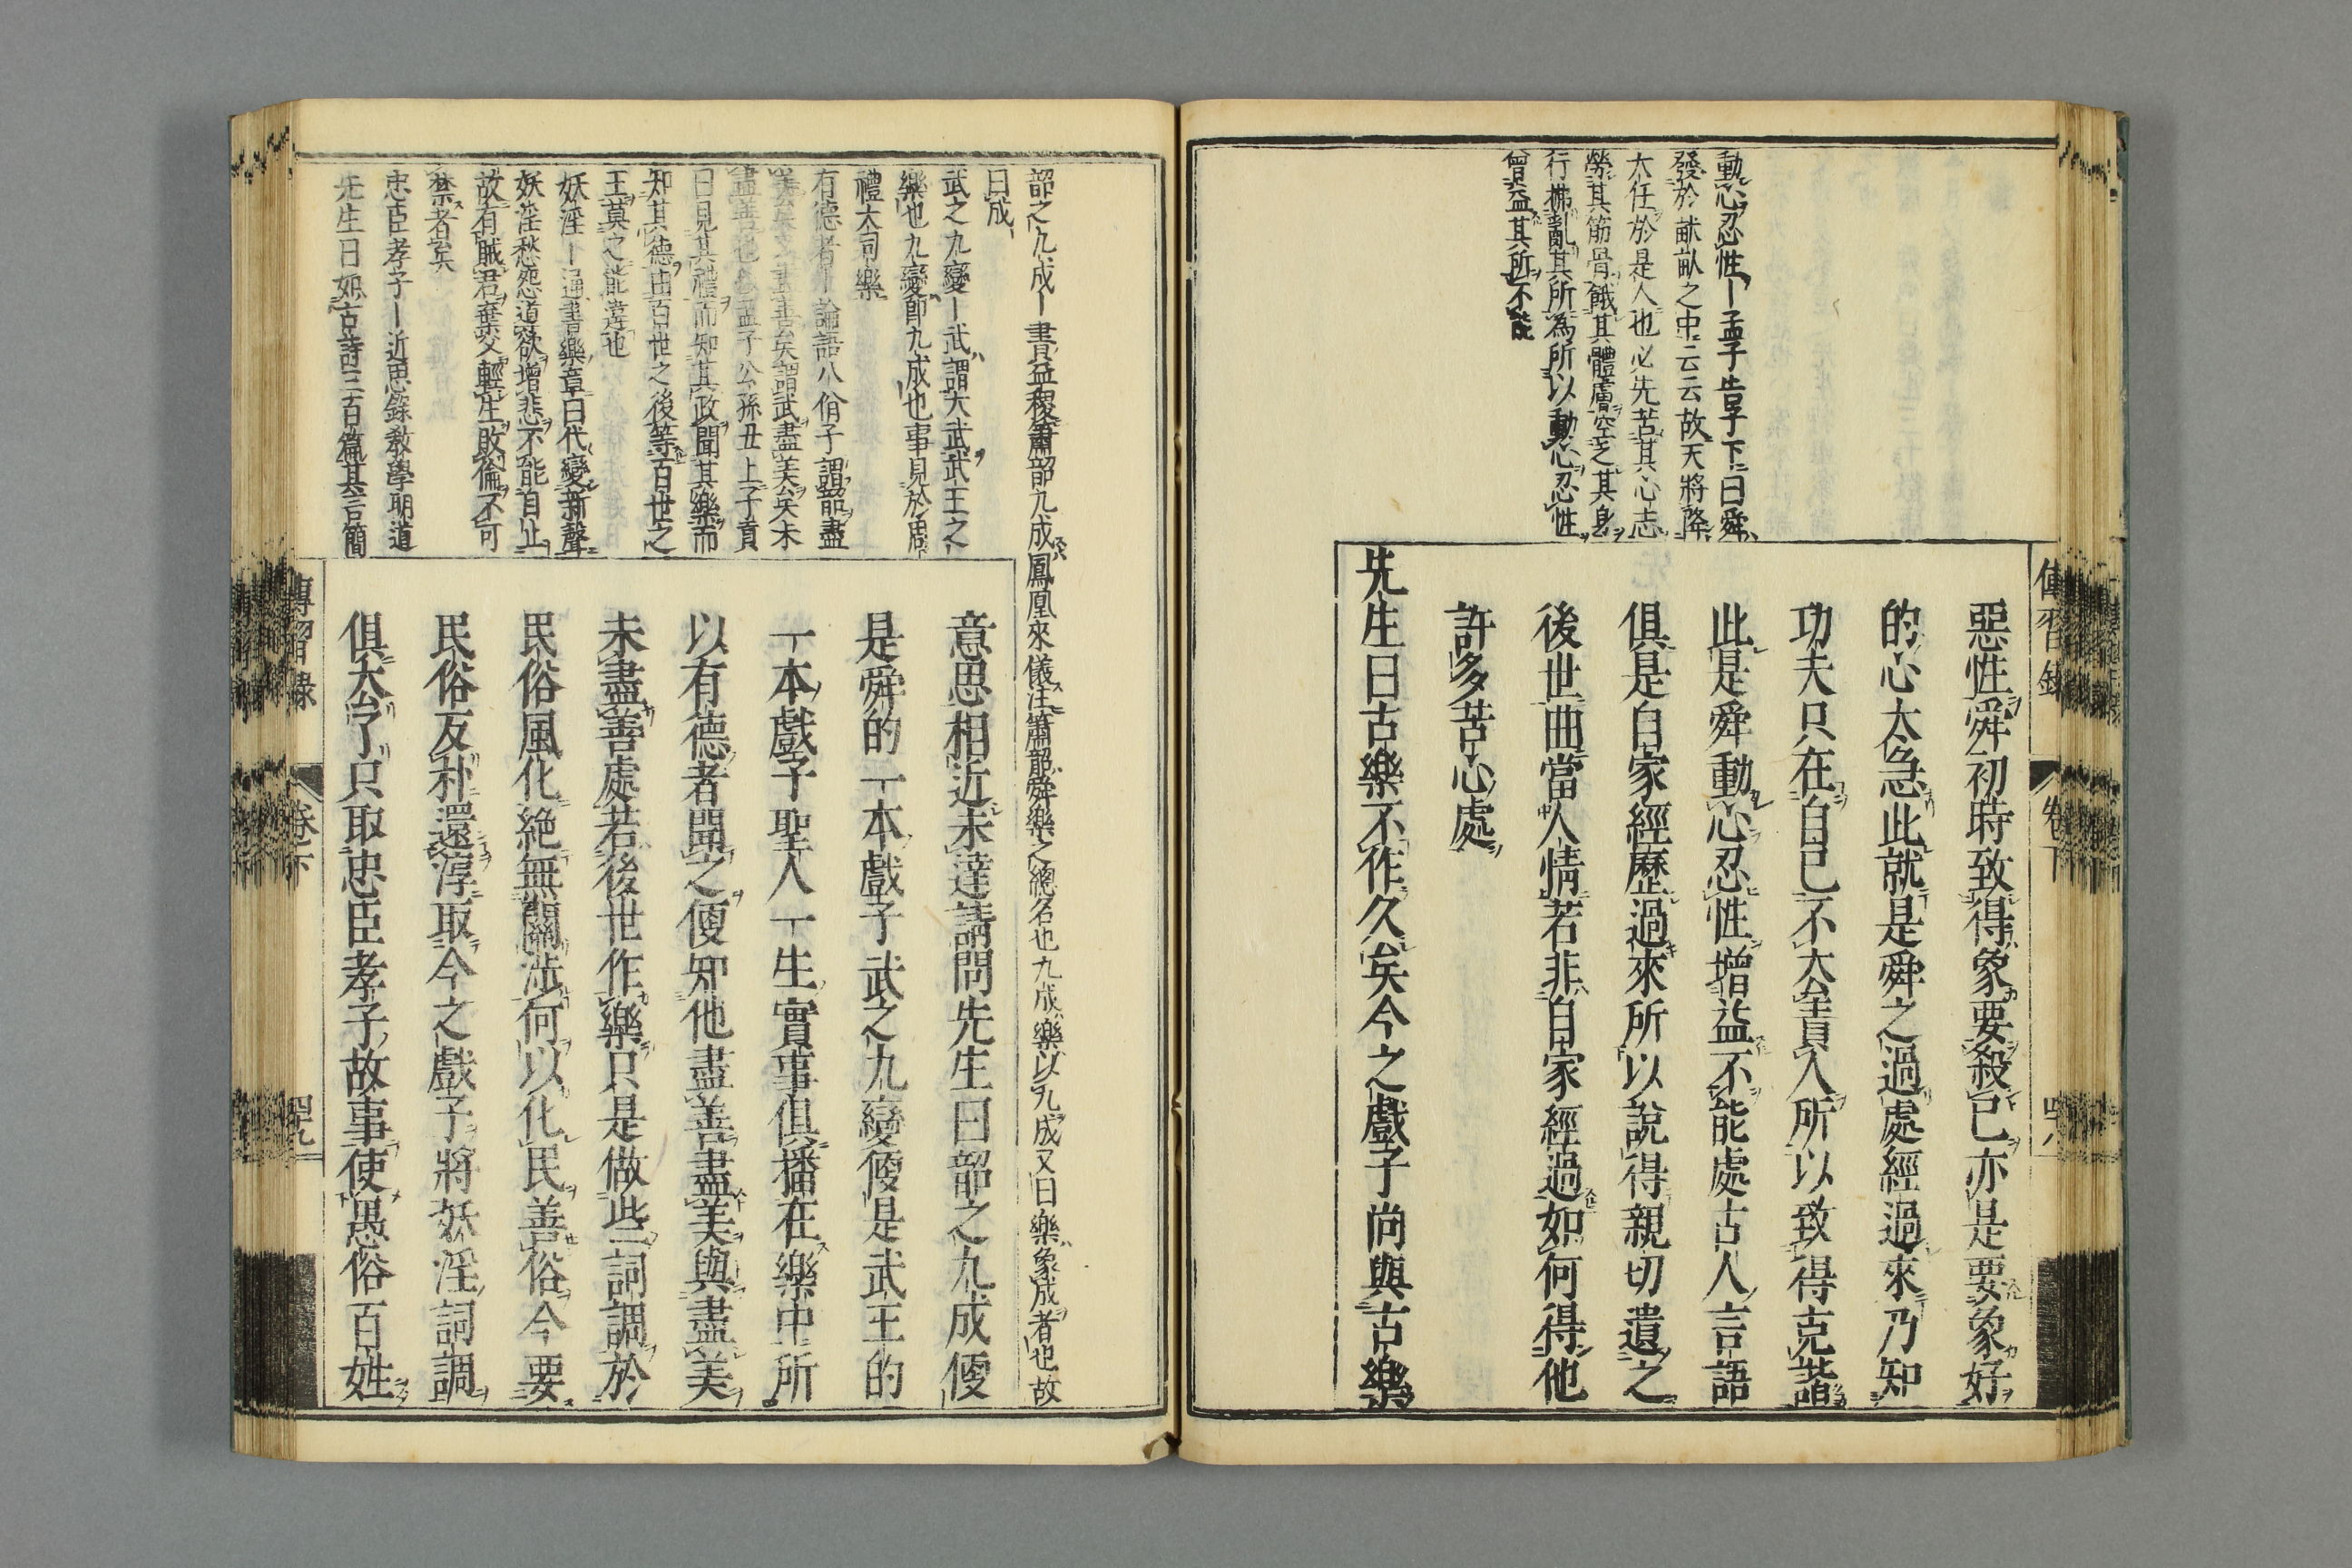 動心忍性ー孟子告子下曰舜
發於畎畝之中云云故天將降
大任於是人也必先苦其心志
勞其筋骨餓其體膚空乏其身
行拂亂其所為所以動心忍性
曾益其所不能
傳習錄
卷下
四八
惡性舜初時致得象要殺己亦是要象好
的心太急此就是舜之過處經過來乃知
功夫只在自己不去責人所以致得克諧
此是舜動心忍性增益不能處古人言語
俱是自家經歷過來所以說得親切遺之
後世曲當人情若非自家經過如何得他
許多苦心處
先生曰古樂不作久矣今之戲子尚與古樂
韶之九成ー書益稷簫韶九成鳳凰來儀注簫韶舜樂之總名也九成樂以九成又曰樂象成者也故
曰成
武之九變ー武謂大武武王之
樂也九變卽九成也事見於周
禮大司樂
有德者ー論語八佾子謂韶盡
美矣又盡善矣謂武盡美矣未
盡善也孟子公孫丑上子貢
曰見其禮而知其政聞其樂而
知其德由百世之後等百世之
王莫之能違也
妖淫ー通書樂章曰代變新聲
妖淫愁怨道欲增悲不能自止
故有賊君棄父輕生敗倫不可
禁者矣
忠臣孝子ー近思錄敎學明道
先生曰如古詩三百篇其言簡
意思相近未達請問先生曰韶之九成便
是舜的一本戲子武之九變便是武王的
一本戲子聖人一生實事俱播在樂中所
以有德者聞之便知他盡善盡美與盡美
未盡善處若後世作樂只是做些詞調於
民俗風化絶無關涉何以化民善俗今要
民俗反朴還淳取今之戲子將妖淫詞調
俱去了只取忠臣孝子故事使愚俗百姓
傳習錄
卷下
四九